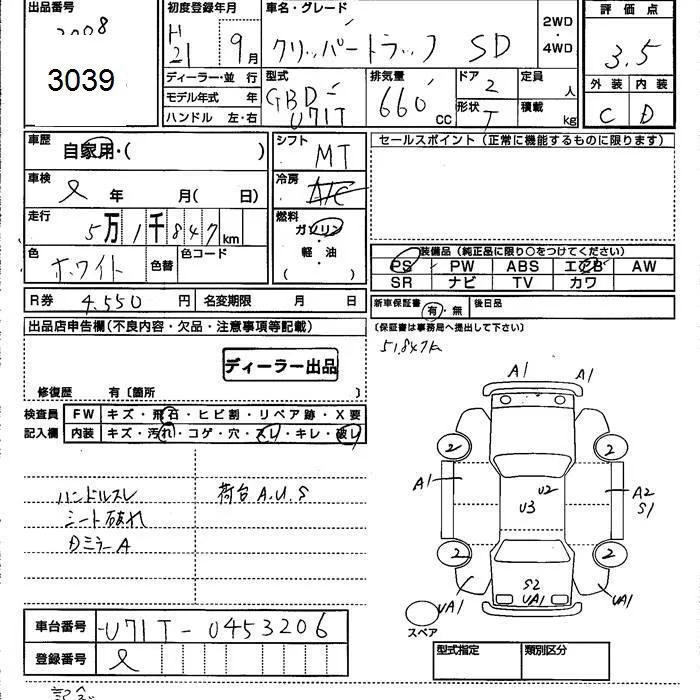 出品番号
3039
初度登録年月
H 21 9月
車名・グレード
クリッパートラック SD
2WD・4WD
評価点
3.5
外装 内装
C D
ディーラー・並行
モデル年式 年
ハンドル 左・右
型式
GBD-U71T
排気量
660 cc
ドア 2
形状 T
定員 人
積載 kg
車歴
自家用・( )
車検
年 月( 日)
走行
5万1千847km
色
ホワイト
色替
色コード
シフト
MT
冷房
A/C
燃料
ガソリン
軽・油
( )
セールスポイント(正常に機能するものに限ります)
装備品(純正品に限り○をつけてください)
PS PW ABS エアB AW
SR ナビ TV カワ
R券 4,550円 名変期限 月 日
新車保証書 有・無 後日品
(保証書は事務局へ提出して下さい)
51,847k
出品店申告欄(不良内容・欠品・注意事項等記載)
ディーラー出品
修復歴 有〔箇所 〕
検査員記入欄
FW キズ・飛石・ヒビ割・リペア跡・X要
内装 キズ・汚れ・コゲ・穴・スレ・キレ・破レ
ハンドルスレ 荷台A.U.S
シート破れ
DミラーA
A1 A1
2 2
A1 U2 A2
U3 S1
2 2
S2
UA1 UA1 UA1
スペア
車台番号 U71T-0453206
登録番号
型式指定 類別区分